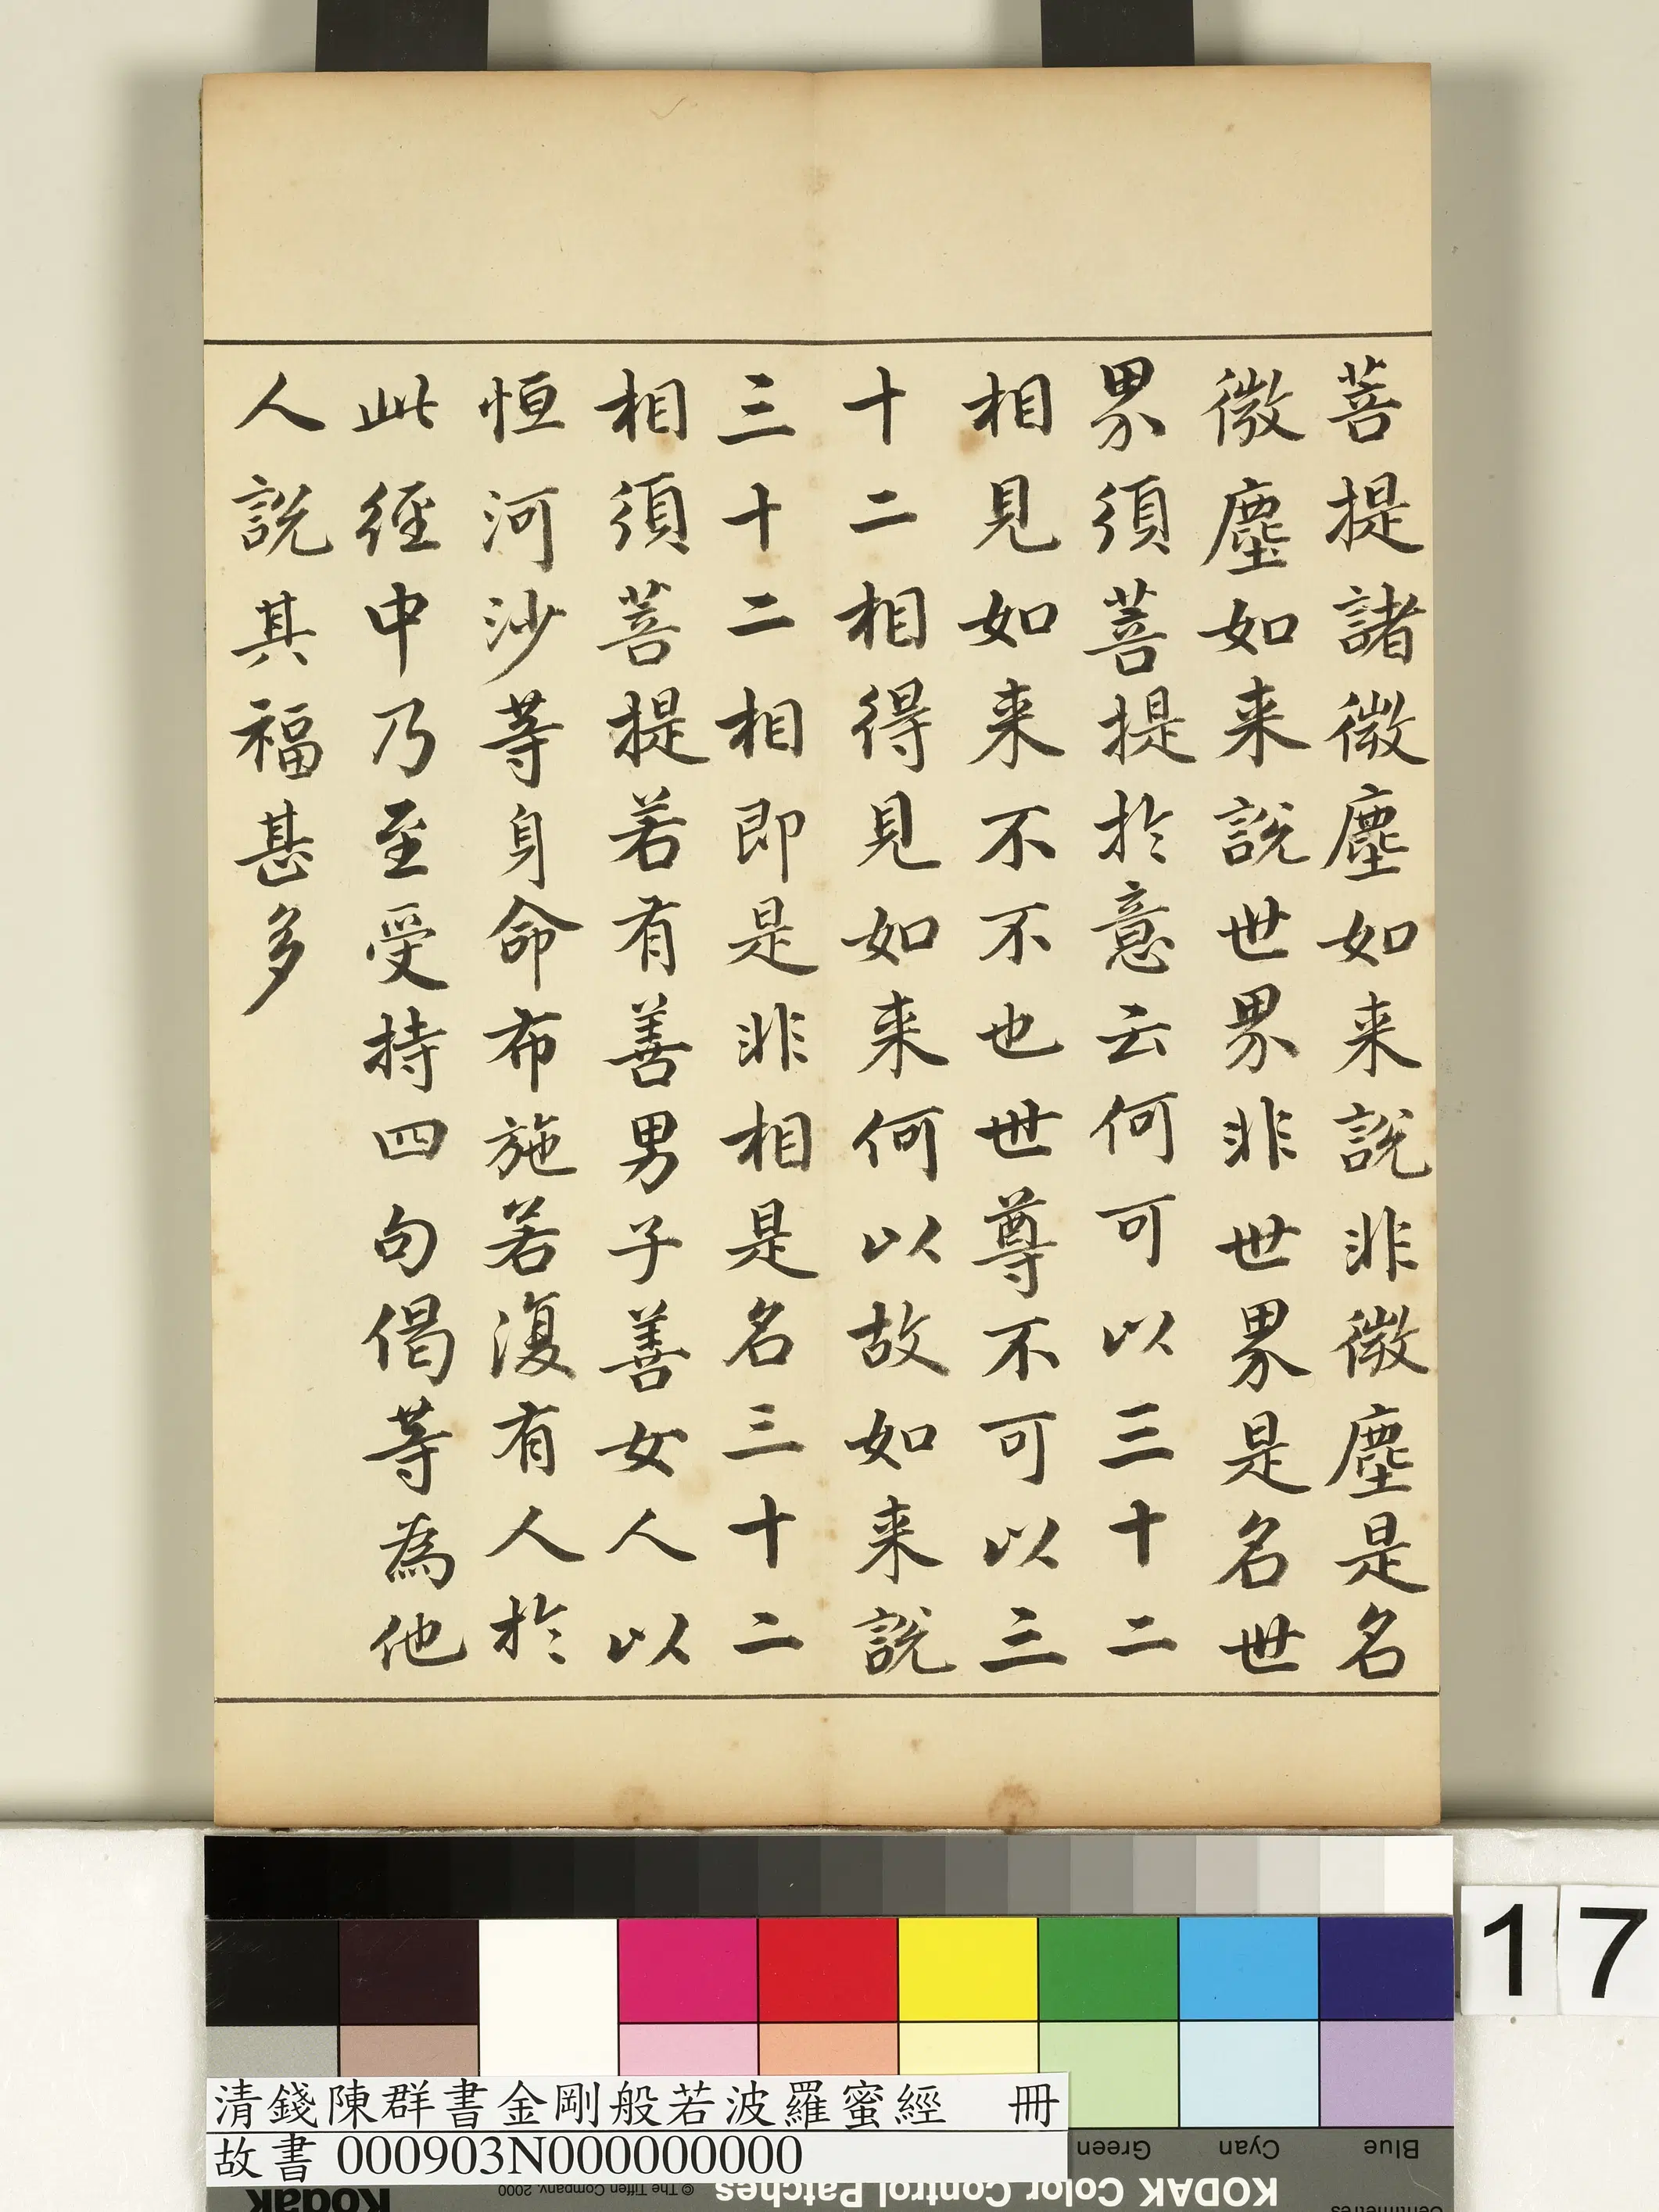 菩提諸微塵如来說非微塵是名
微塵如来說世界非世界是名世
界須菩提於意云何可以三十二
相見如来不不也世尊不可以三
十二相得見如来何以故如来說
三十二相即是非相是名三十二
相須菩提若有善男子善女人以
恒河沙等身命布施若復有人於
此經中乃至受持四句偈等為他
人說其福甚多
17
清錢陳群書金剛般若波羅蜜經 冊
故書 000903N000000000
Green Cyan Blue
Kodak © The Tiffen Company, 2000 KODAK Color Control Patches Centimetres